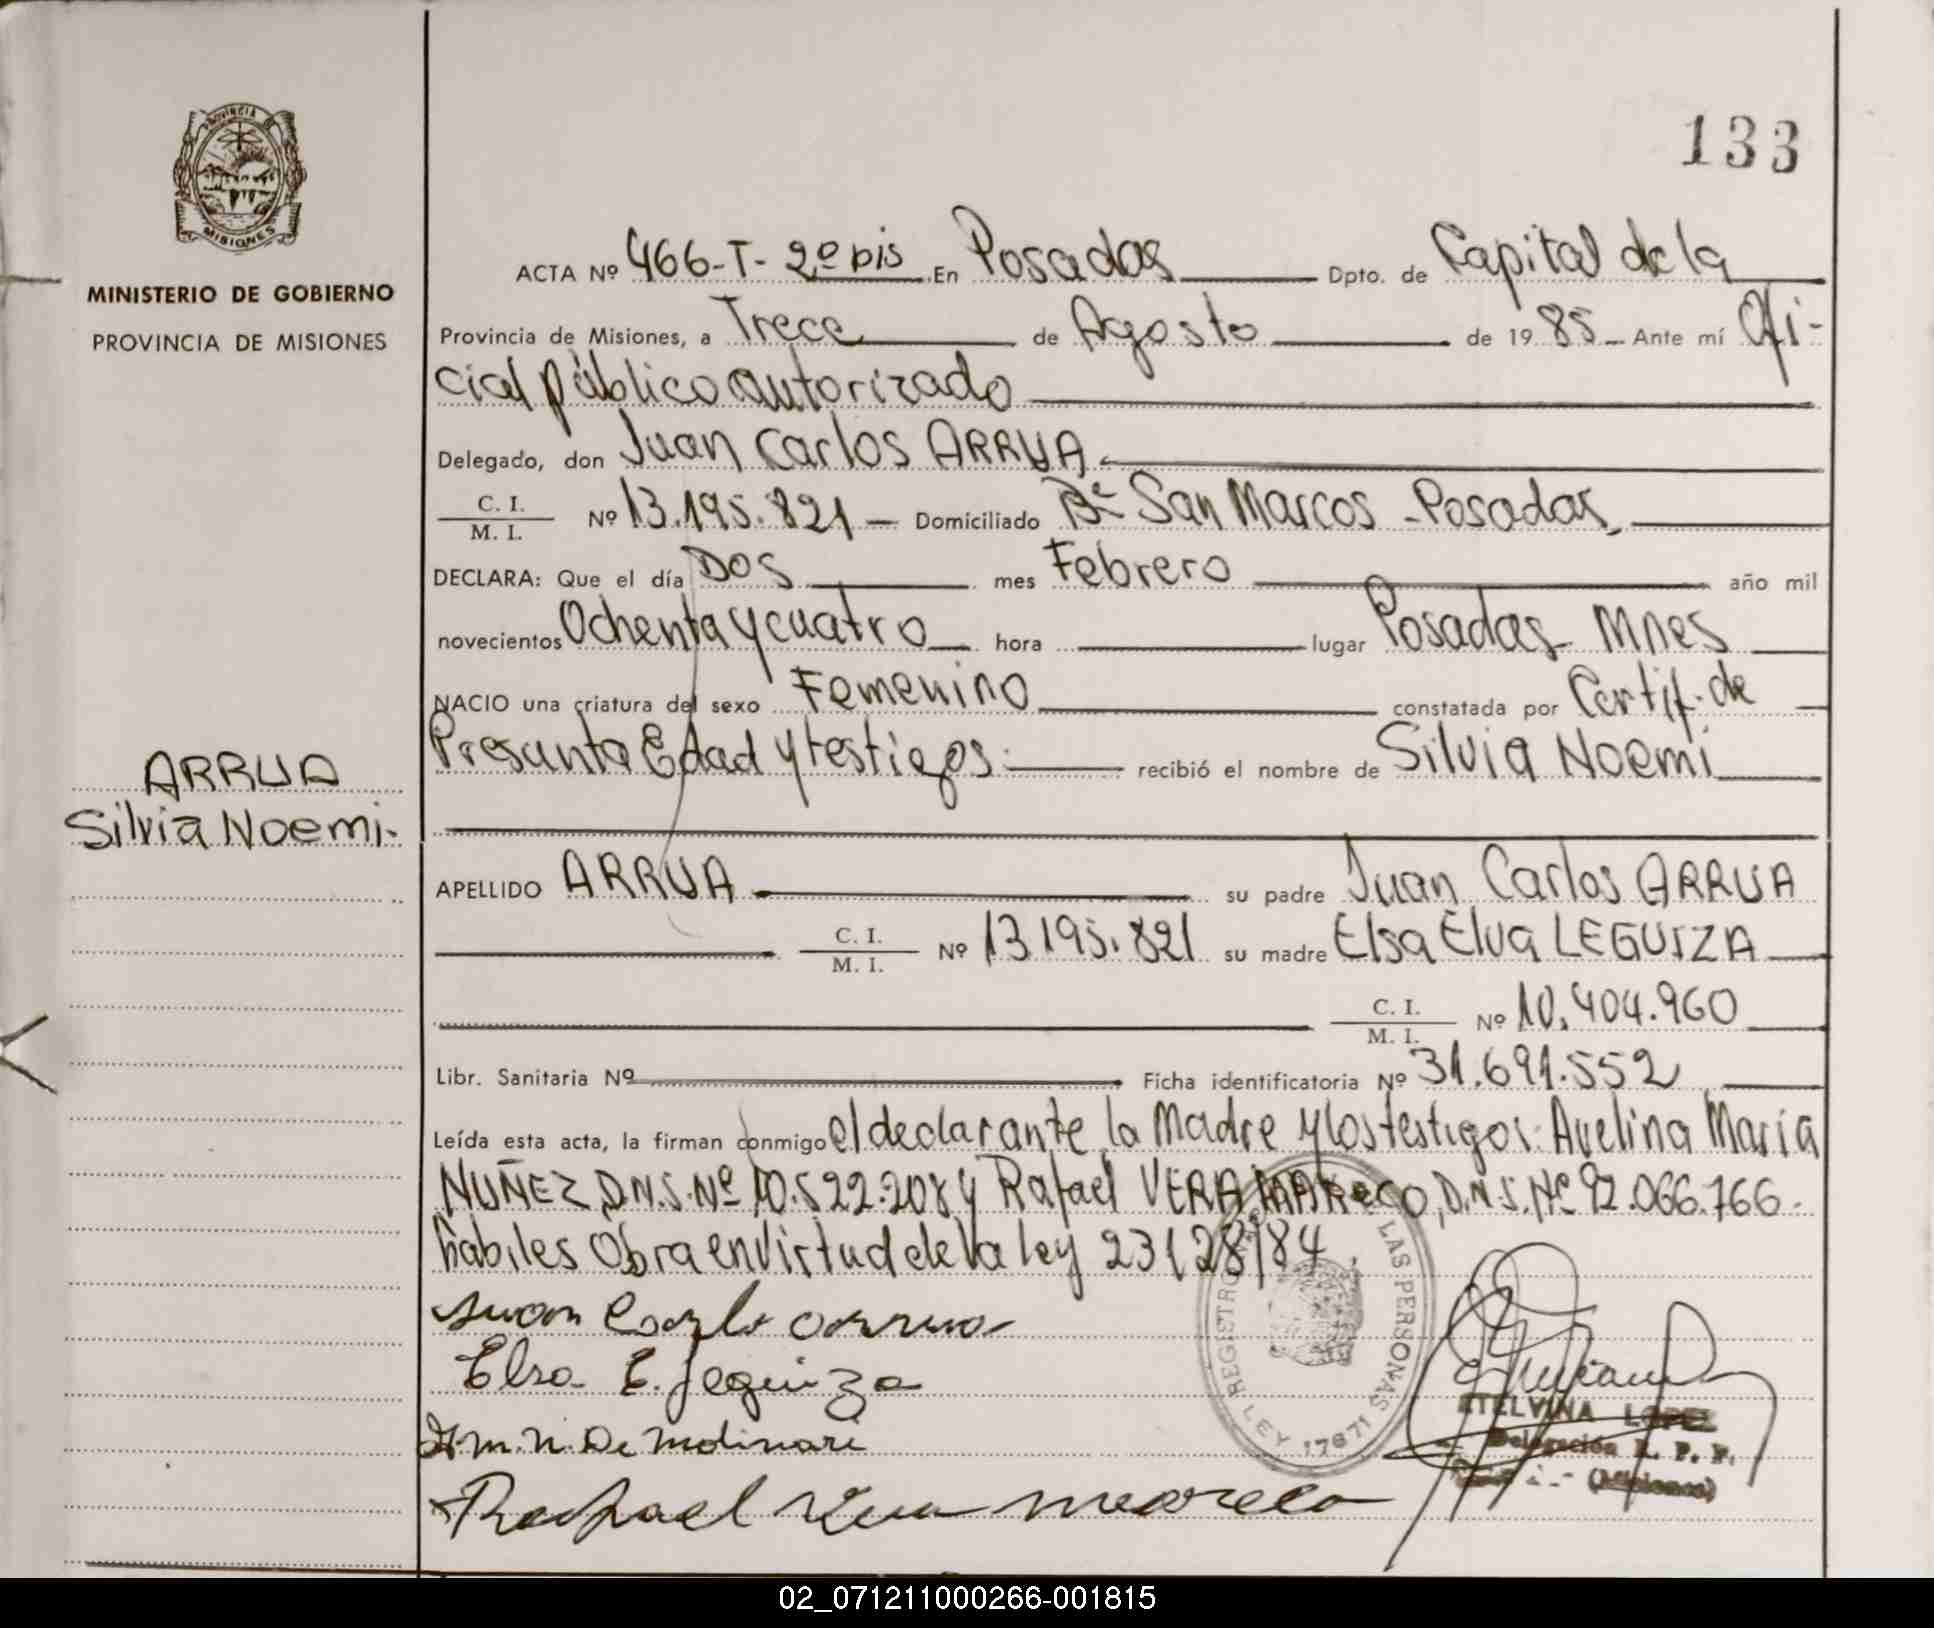 133
PROVINCIA DE
MISIONES
MINISTERIO DE GOBIERNO
PROVINCIA DE MISIONES
ARRUA
Silvia Noemi-
ACTA Nº 466-T-2º bis En Posadas Dpto. de Capital de la
Provincia de Misiones, a Trece de Agosto de 1985 Ante mí Ofi-
cial público autorizado
Delegado, don Juan Carlos ARRUA
C. I.
M. I. Nº 13.195.821 - Domiciliado Bº San Marcos - Posadas
DECLARA: Que el día Dos mes Febrero año mil
novecientos Ochenta y cuatro hora lugar Posadas - Mnes
NACIO una criatura del sexo Femenino constatada por Certif. de
Presunta Edad y testigos recibió el nombre de Silvia Noemi
APELLIDO ARRUA su padre Juan Carlos ARRUA
C. I.
M. I. Nº 13195.821 su madre Elsa Elva LEGUIZA
C. I.
M. I. Nº 10.404.960
Libr. Sanitaria Nº Ficha identificatoria Nº 31.691.552
Leída esta acta, la firman conmigo el declarante, la Madre y los testigos: Avelina María
NUÑEZ, D.N.I. Nº 10.522.208 y Rafael VERA MARECO, D.N.I. Nº 92.066.766.
hábiles Obra en Virtud de la ley 23128/84.
Juan Carlo Arrua
Elsa E. Leguiza
A. M. N. De Molinari
Rafael Vera Mareco
REGISTRO LAS PERSONAS
LEY 17671
ETELVINA LOPEZ
Delegación R. P. P.
(Misiones)
02_071211000266-001815